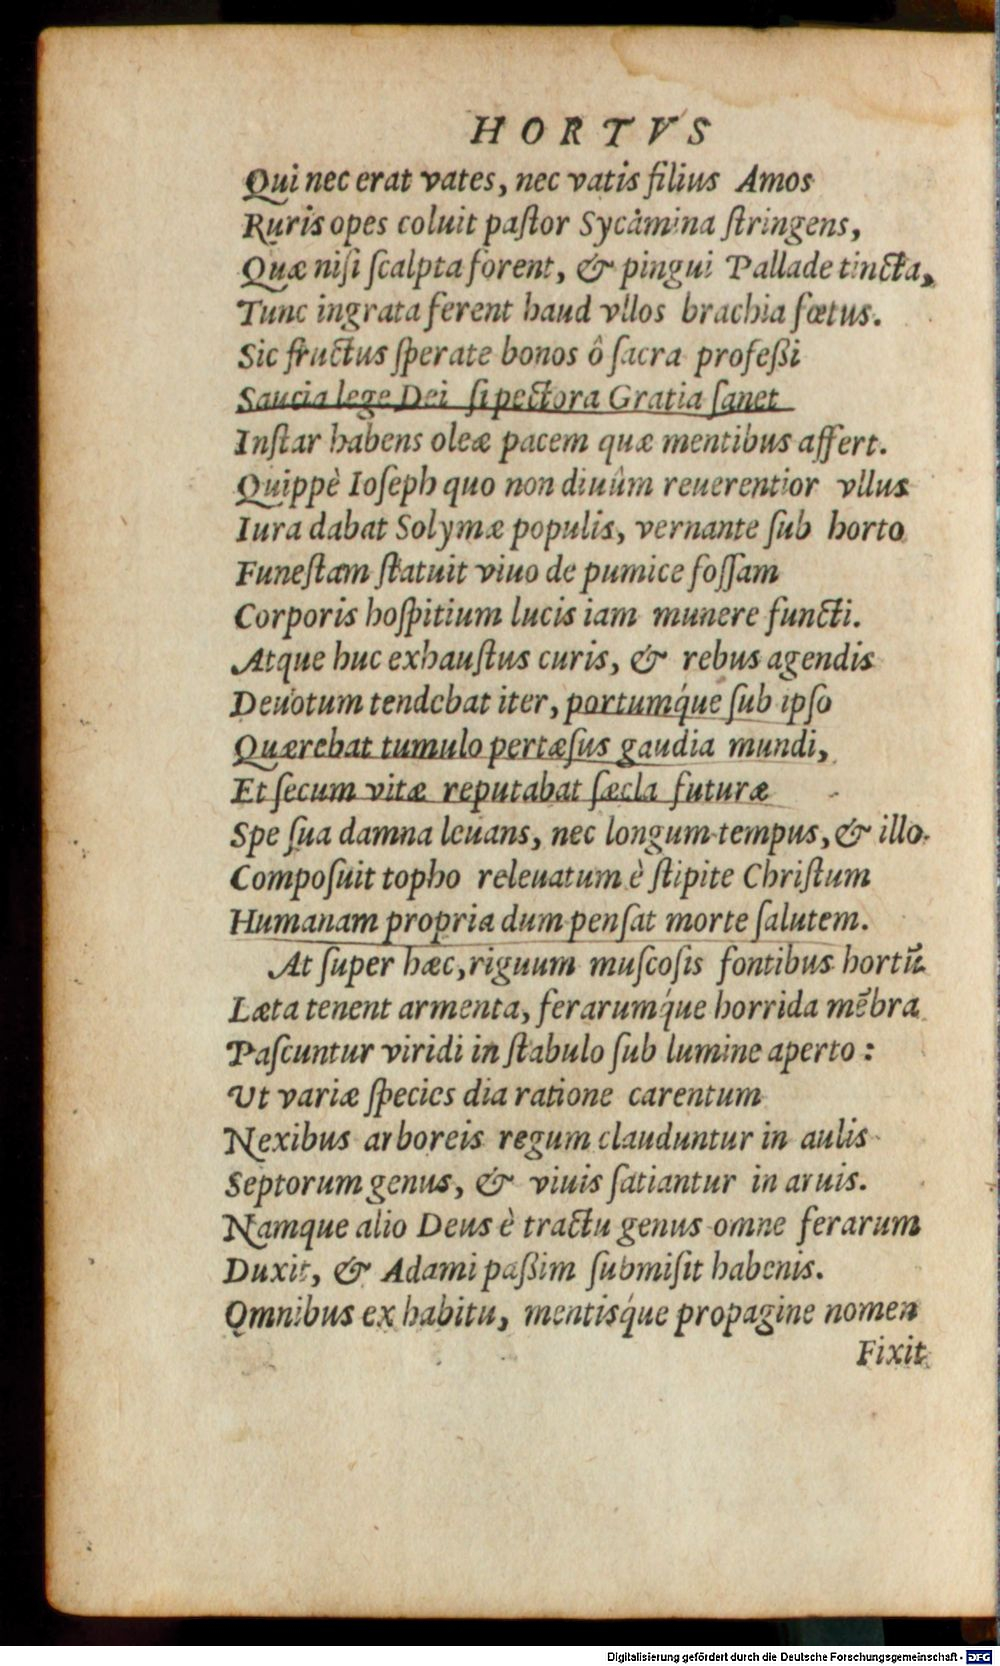 HORTVS
Qui nec erat vates, nec vatis filius Amos
Ruris opes coluit paſtor Sycāmina ſtringens,
Quæ niſi ſcalpta forent, & pingui Pallade tincta,
Tunc ingrata ferent haud vllos brachia fœtus.
Sic fructus ſperate bonos ô ſacra profeßi
Saucia lege Dei ſi pectora Gratia ſanet
Inſtar habens oleæ pacem quæ mentibus affert.
Quippè Ioſeph quo non diuûm reuerentior vllus
Iura dabat Solymæ populis, vernante ſub horto
Funeſtam ſtatuit viuo de pumice foſſam
Corporis hoſpitium lucis iam munere functi.
Atque huc exhauſtus curis, & rebus agendis
Deuotum tendebat iter, portumq́ue ſub ipſo
Quærebat tumulo pertæſus gaudia mundi,
Et ſecum vitæ reputabat ſæcla futuræ
Spe ſua damna leuans, nec longum tempus, & illo
Compoſuit topho releuatum è ſtipite Chriſtum
Humanam propria dum penſat morte ſalutem.
At ſuper hæc, riguum muſcoſis fontibus hortū
Læta tenent armenta, ferarumq́ue horrida mēbra
Paſcuntur viridi in ſtabulo ſub lumine aperto :
Ut variæ ſpecies dia ratione carentum
Nexibus arboreis regum clauduntur in aulis
Septorum genus, & viuis ſatiantur in aruis.
Namque alio Deus è tractu genus omne ferarum
Duxit, & Adami paßim ſubmiſit habenis.
Omnibus ex habitu, mentisq́ue propagine nomen
Fixit
Digitalisierung gefördert durch die Deutsche Forschungsgemeinschaft - DFG